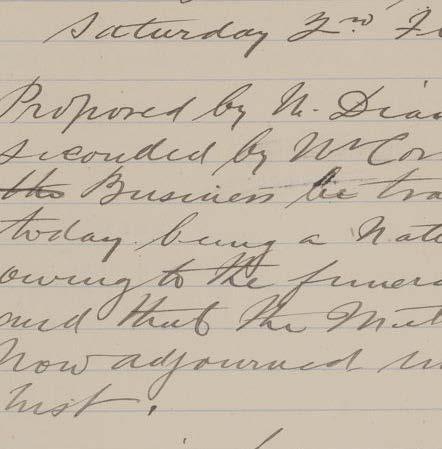 Saturday 2nd F
Proposed by M. Dia
seconded by Mr Cor
the Business be tra
today being a Nati
owing to the funera
and that the Meet
now adjourned un
Inst.